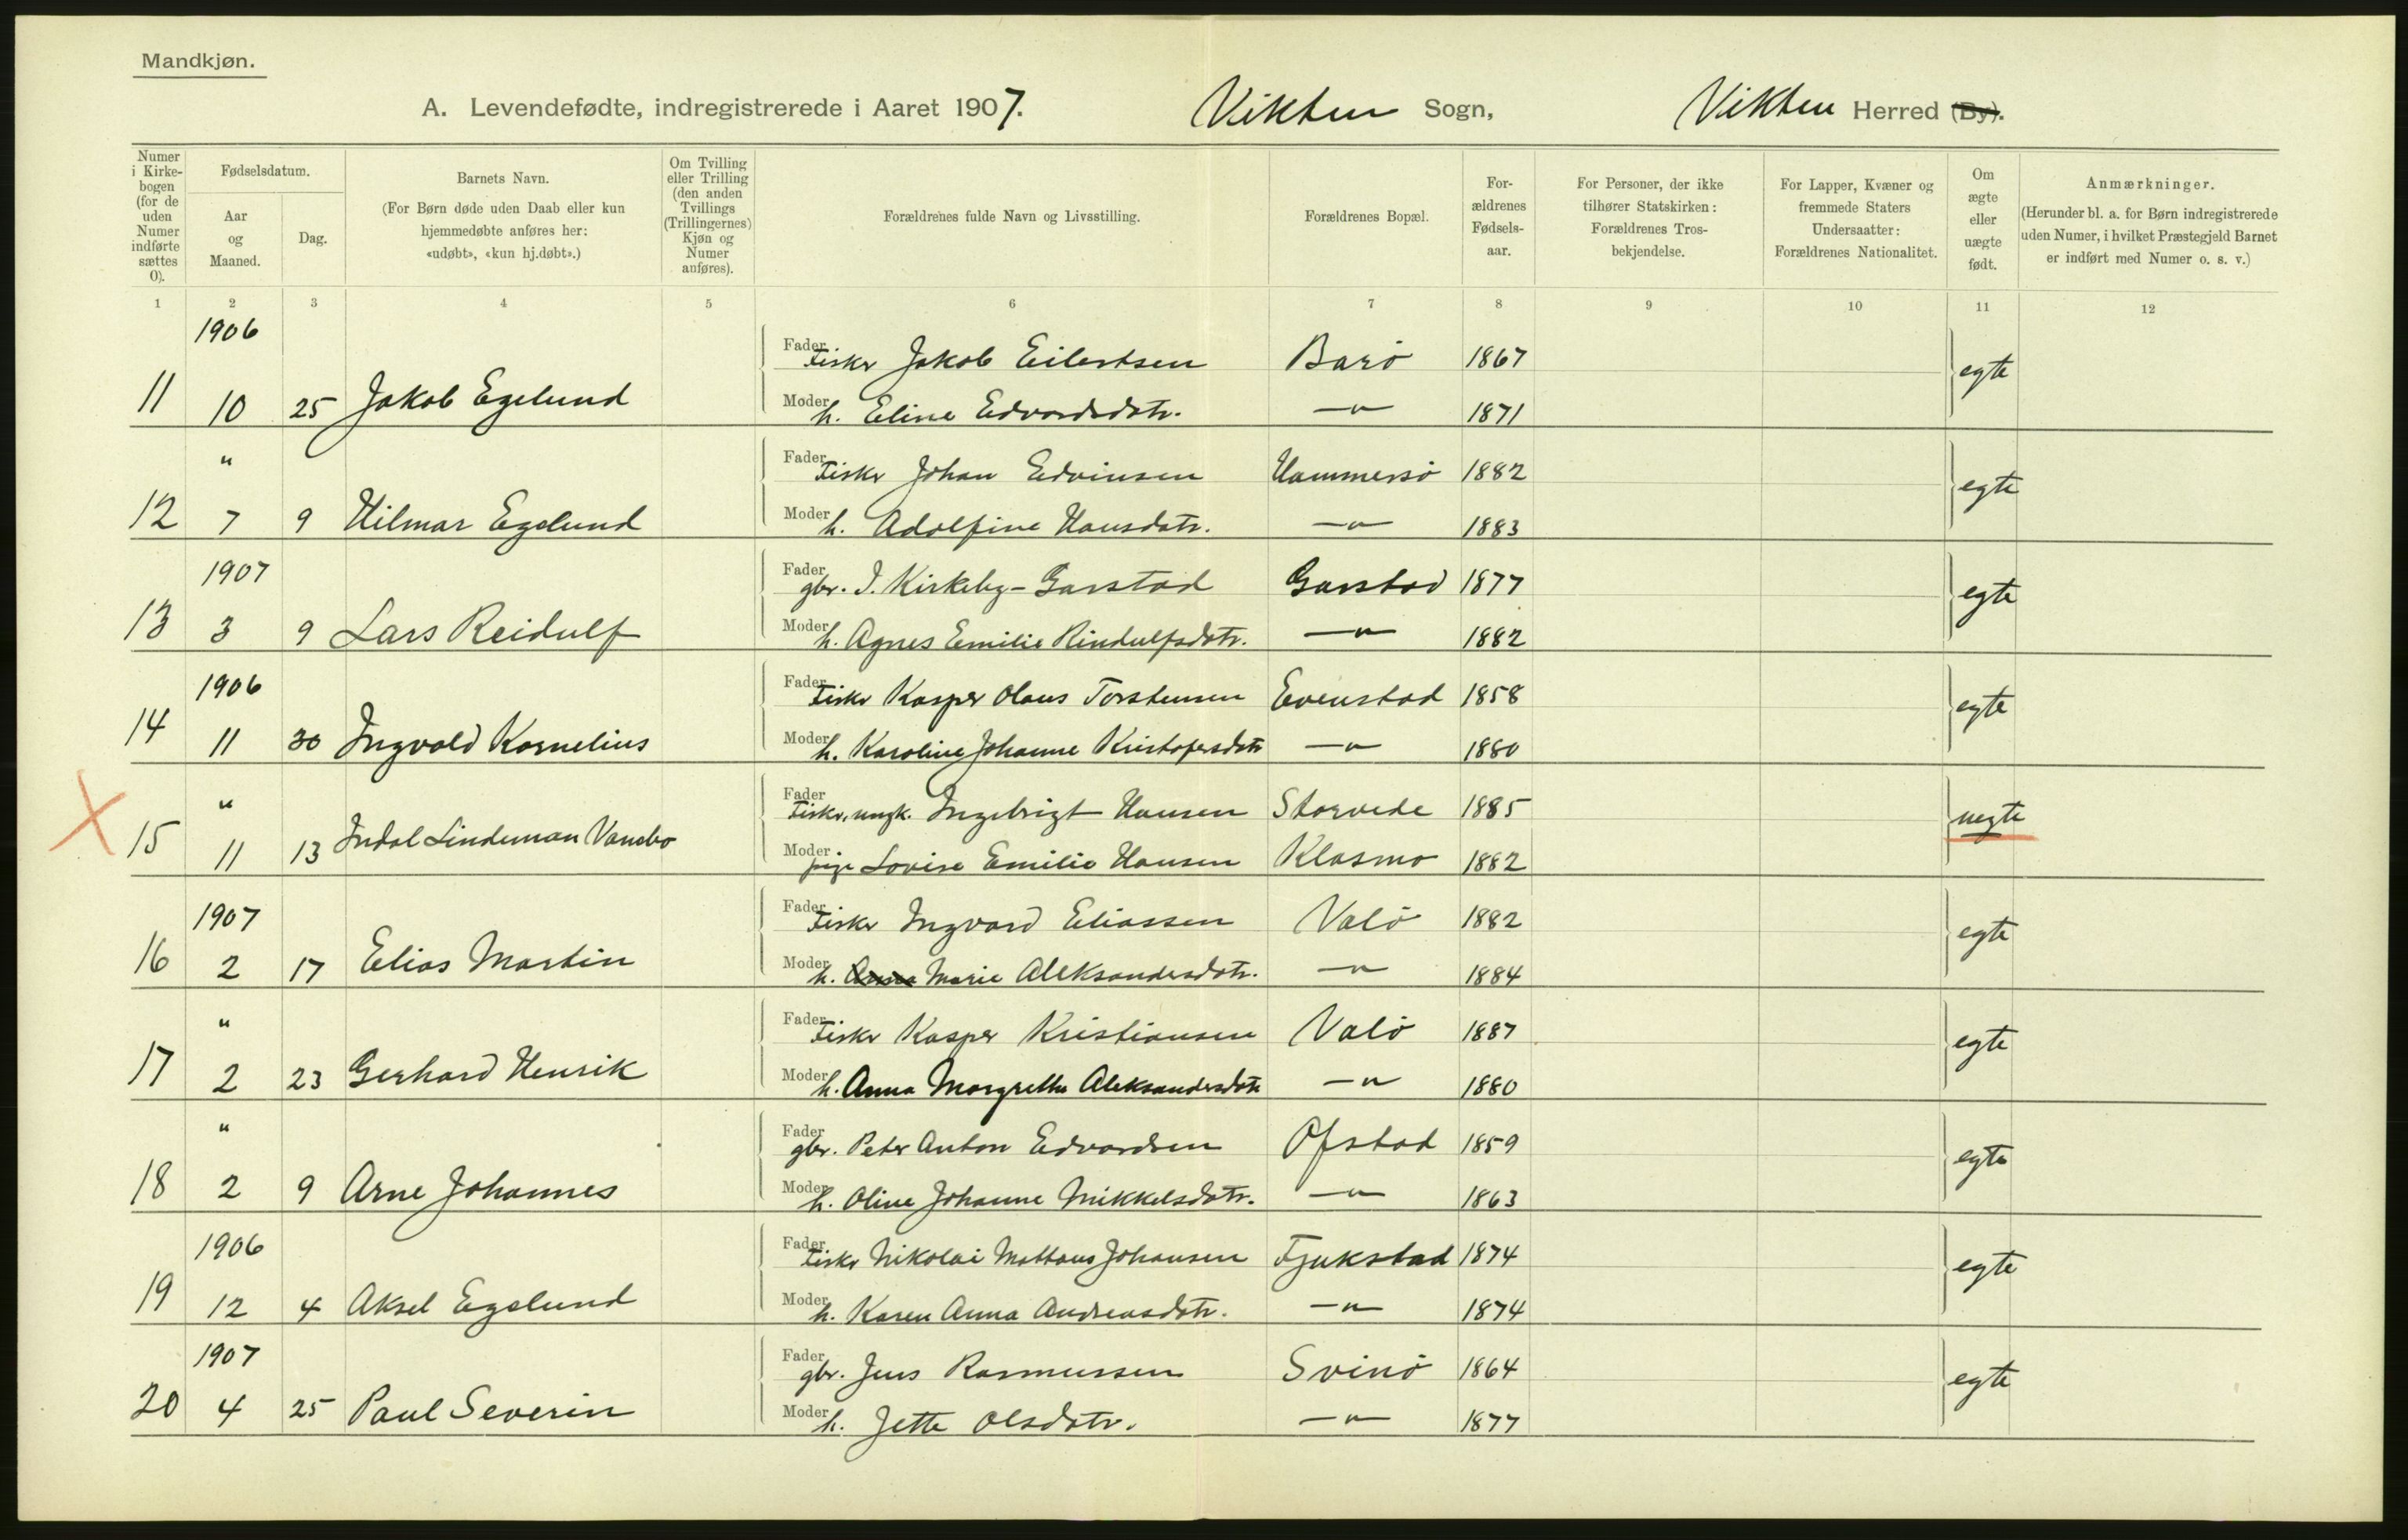 Mandkjøn.
A. Levendefødte, indregistrerede i Aaret 1907. Vikten Sogn, Vikten Herred (By).
Numer i Kirkebogen (for de uden Numer indførte sættes 0).
Fødselsdatum.
Aar og Maaned.
Dag.
Barnets Navn.
(For Børn døde uden Daab eller kun hjemmedøbte anføres her: «udøbt», «kun hj.døbt».)
Om Tvilling eller Trilling (den anden Tvillings (Trillingernes) Kjøn og Numer anføres).
Forældrenes fulde Navn og Livsstilling.
Forældrenes Bopæl.
Forældrenes Fødselsaar.
For Personer, der ikke tilhører Statskirken: Forældrenes Trosbekjendelse.
For Lapper, Kvæner og fremmede Staters Undersaatter: Forældrenes Nationalitet.
Om ægte eller uægte født.
Anmærkninger.
(Herunder bl. a. for Børn indregistrerede uden Numer, i hvilket Præstegjeld Barnet er indført med Numer o. s. v.)
1 2 3 4 5 6 7 8 9 10 11 12
1906
Fader Fisker Jakob Eilertsen Barö 1867 egte
11 10 25 Jakob Egelund
Moder h. Eline Edvardsdatr. —"— 1871
"
Fader Fisker Johan Edvinsen Hammersö 1882 egte
12 7 9 Hilmar Egelund
Moder h. Adolfine Hansdatr. —"— 1883
1907
Fader gbr. J. Kirkeby-Garstad Garstad 1877 egte
13 3 9 Lars Reidulf
Moder h. Agnes Emilie Rindulfsdatr. —"— 1882
1906
Fader Fisker Kasper Olaus Torstensen Evenstad 1858 egte
14 11 30 Ingvald Kornelius
Moder h. Karoline Johanne Kristofersdatr —"— 1880
"
Fader Fisker, ungk. Ingebrigt Hansen Storvede 1885 uegte
15 11 13 Indal Lindeman Vansbo
Moder pige Lovise Emilie Hansen Klasmo 1882
1907
Fader Fisker Ingvard Eliassen Valö 1882 egte
16 2 17 Elias Martin
Moder h. Anna Marie Aleksandersdatr. —"— 1884
"
Fader Fisker Kasper Kristiansen Valö 1887 egte
17 2 23 Gerhard Henrik
Moder h. Anna Margrethe Aleksandersdatr —"— 1880
"
Fader gbr. Peter Anton Edvardsen Ofstad 1859 egte
18 2 9 Arne Johannes
Moder h. Oline Johanne Mikkelsdatr. —"— 1863
1906
Fader Fisker Nikolai Mattæus Johansen Fjukstad 1874 egte
19 12 4 Aksel Egelund
Moder h. Karen Anna Andreasdatr. —"— 1874
1907
Fader gbr. Jens Rasmussen Svinö 1864 egte
20 4 25 Paul Severin
Moder h. Jette Olsdatr. —"— 1877